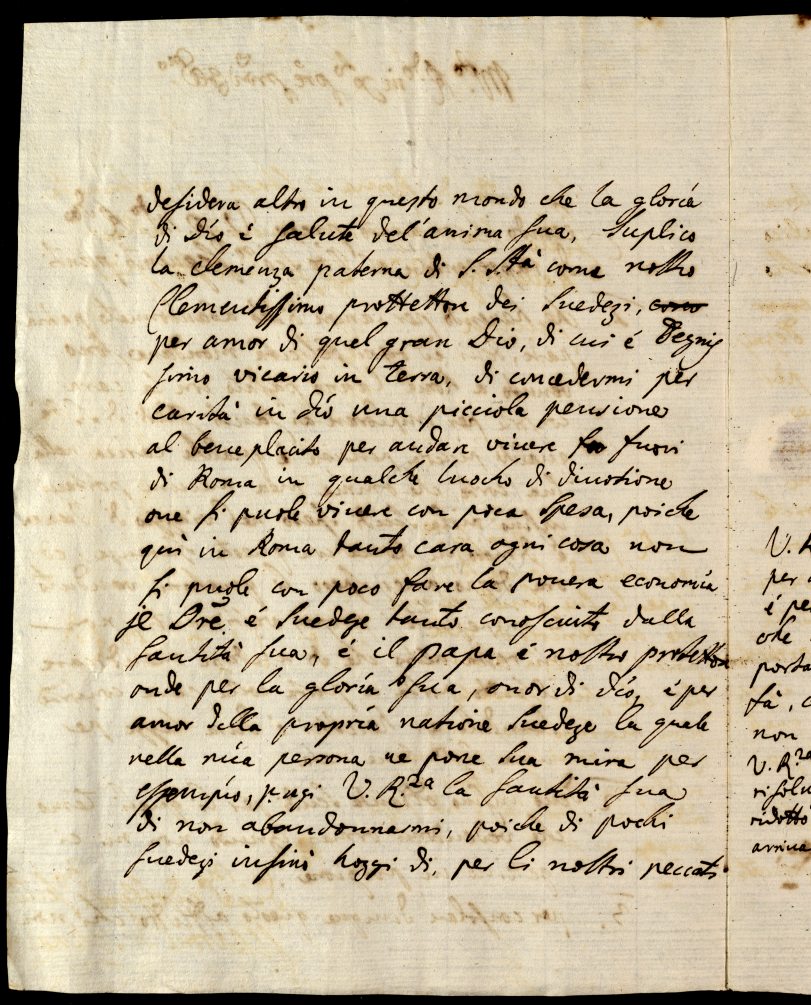 desidera altro in questo mondo che la gloria
di Dio è salute del'anima sua, Suplico
la clemenza paterna di S. Stà come nostro
Clementissimo prottettore dei Suedezi, como
per amor di quel gran Dio, di cui é Degnis
simo vicario in terra, di concedermi per
carità in dio una picciola pensione
al beneplacito per andare vivere fu fuori
di Roma in qualche luocho di divotione
oue si puole vivere con poca Spesa, poiche
qui in Roma tanto cara ogni cosa non
si puole con poco fare la pouera economia
il Dre é Suedese tanto conosciuto dalla
Santità sua, é il papa é nostro protettore
onde per la gloria sua, onor di dio, é per
amor della propria natione Suedeze la quale
nella mia persona ne pone sua mira per
essempio, pugi V. R.za la Santità sua
di non abandonnarmi, poiche di pochi
Suedezi insino hoggi di, per li nostri peccati
V. R
per
é pe
che
porta
fà, c
non
V. R.za
risolu
ridotto
arriua